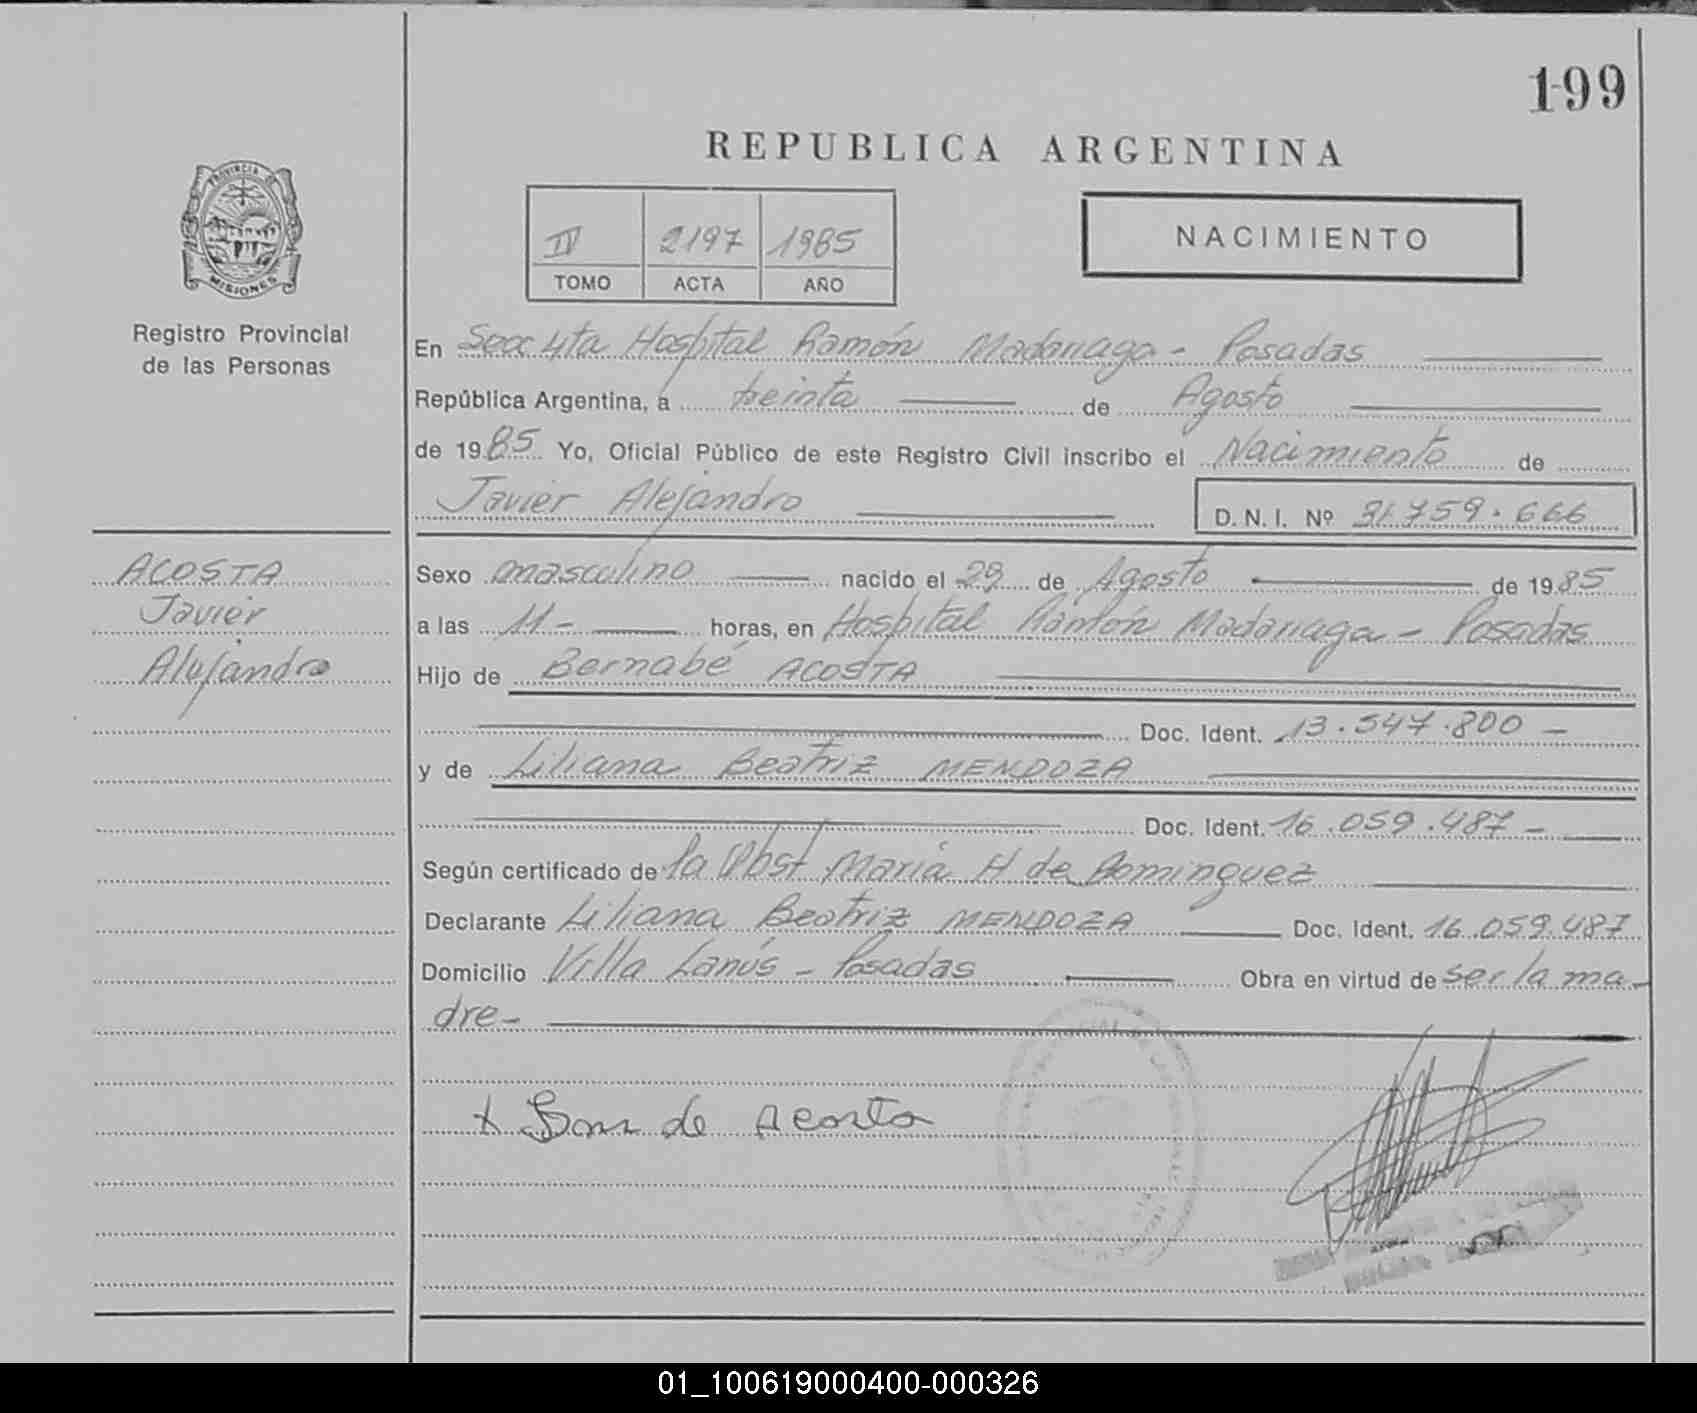 199
REPUBLICA ARGENTINA
PROVINCIA DE
MISIONES
Registro Provincial
de las Personas
IV 2197 1985
TOMO ACTA AÑO
NACIMIENTO
En Secc 4ta Hospital Ramón Madariaga - Posadas
República Argentina, a treinta de Agosto
de 1985 Yo, Oficial Público de este Registro Civil inscribo el Nacimiento de
Javier Alejandro D.N.I. Nº 31.759.666
ACOSTA
Javier
Alejandro
Sexo masculino nacido el 29 de Agosto de 1985
a las 11- horas, en Hospital Ramón Madariaga - Posadas
Hijo de Bernabé ACOSTA
Doc. Ident. 13.547.800 -
y de Liliana Beatriz MENDOZA
Doc. Ident. 16.059.487 -
Según certificado de la Obst María H de Dominguez
Declarante Liliana Beatriz MENDOZA Doc. Ident. 16.059.487
Domicilio Villa Lanús - Posadas Obra en virtud de ser la ma-
dre-
x de Acosta
01_100619000400-000326